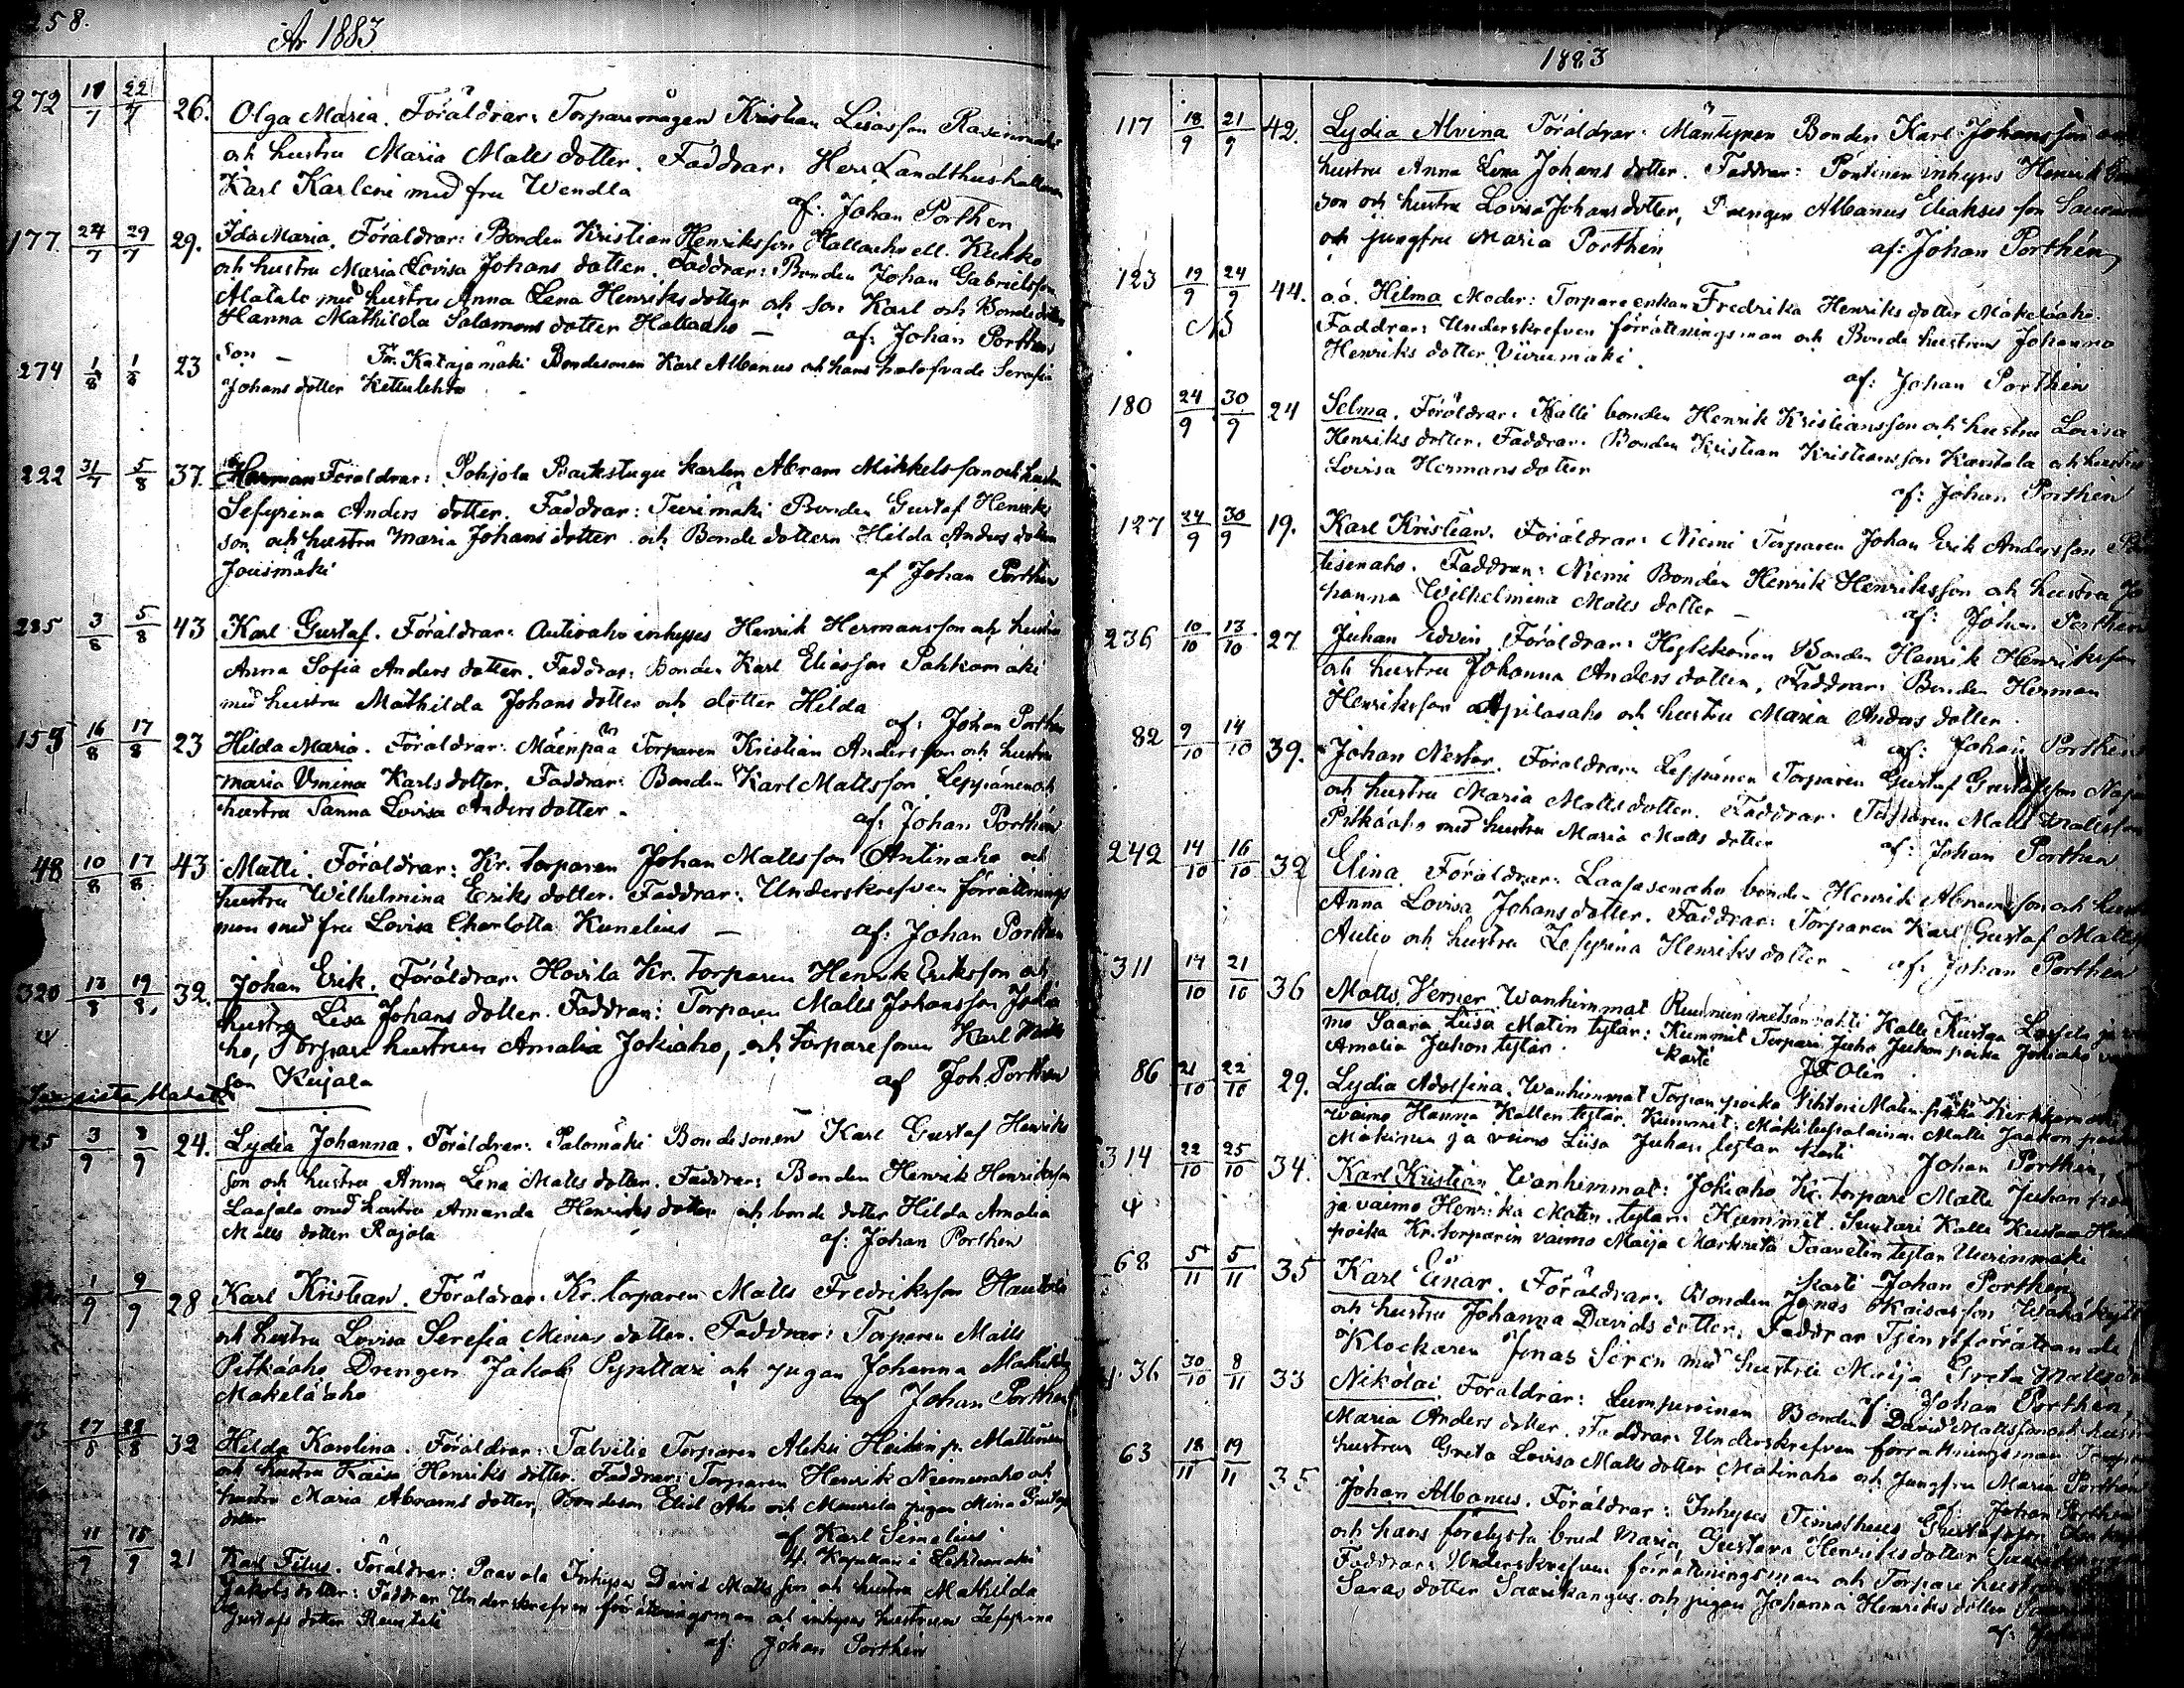 258.
År 1883
272 17/7 22/7 26. Olga Maria. Föräldrar: Torparemågen Kristian Lisasson
och hustru Maria Matts dotter. Faddrar: Herr Landthushållaren
Karl Karleni med fru Wendla
af: Johan Porthen
177. 24/7 29/7 29. Ida Maria. Föräldrar: Bonden Kristian Henriksson Hallaaho ell. Kukko
och hustru Maria Lovisa Johans dotter. Faddrar: Bonden Johan Gabrielsson
Alatalo med hustru Anna Lena Henriks dotter och son Karl och Bonde dotter
Hanna Mathilda Salomons dotter Hallaaho — af: Johan Porthen
274 1/8 1/8 23 Son — Fr. Katajamäki Bondesonen Karl Albanus och hans Serafia
Johans dotter Kettulehto
222 31/7 5/8 37. Herman Föräldrar: Pohjola Backstugu karlen Abram Mikkelsson och hustru
Sefyrina Anders dotter. Faddrar: Turimäki Bonden Gustaf Henriks
son och hustru Maria Johans dotter och Bonde dottern Hilda Anders dotter
Jousmäki af Johan Porthen
285 3/8 5/8 43 Karl Gustaf. Föräldrar: Autioaho inhyses Henrik Hermansson och hustru
Anna Sofia Anders dotter. Faddrar: Bonden Karl Eliasson Pahkamäki
med hustru Mathilda Johans dotter och dotter Hilda
af: Johan Porthen
159 16/8 17/8 23 Hilda Maria. Föräldrar: Mäenpää Torparen Kristian Andersson och hustru
Maria Vmina Karls dotter. Faddrar: Bonden Karl Mattsson Leppänen och
hustru Sanna Lovisa Anders dotter. af: Johan Porthen
48 10/8 17/8 43 Matti. Föräldrar: Kr. torparen Johan Mattsson Antinaho och
hustru Wilhelmina Eriks dotter. Faddrar: Underskrefven förrättnings
man med fru Lovisa Charlotta Kunelius — af: Johan Porthen
320 13/8 19/8 32. Johan Erik. Föräldrar: Hovila Kr. torparen Henrik Eriksson och
hustru Lisa Johans dotter. Faddrar: Torparen Matts Johansson Jokia
ho, Torpare hustrun Amalia Jokiaho, och torparesonen Karl Matts
son Kujala af Joh Porthen
125 3/9 8/9 24. Lydia Johanna. Föräldrar: Palomäki Bondesonen Karl Gustaf Henriks
son och hustru Anna Lena Matts dotter. Faddrar: Bonden Henrik Henriksson
Laajala med hustru Amanda Henriks dotter och bonde dotter Hilda Amalia
Matts dotter Rajala af: Johan Porthen
1/9 9/9 28 Karl Kristian. Föräldrar: Kr. torparen Matts Fredriksson Hautala
och hustru Lovisa Serefia Miinas dotter. Faddrar: Torparen Matts
Pitkäaho, Drengen Jakob Pynttäri och pigan Johanna Mathilda
Mäkeläaho af Johan Porthen
27/8 28/8 32 Hilda Karolina. Föräldrar: Talvitie Torparen Aleksi Heikin p. Mattinen
och hustru Kaisa Henriks dotter. Faddrar: Torparen Henrik Niemenaho och
hustru Maria Abrams dotter, Bondeson Eliel Aho och Maurila pigan Mina Gustafs
dotter
af Karl Simelius
Kapellan i Lehtimäki
11/9 15/9 21 Karl Titus. Föräldrar: Paavola Inhyses David Mattsson och hustru Mathilda
Jakobs dotter: Faddrar Underskrefven förrättningsman och inhyses hustrun Zefyrina
Gustafs dotter
af: Johan Porthen
1883
117 18/9 21/9 42. Lydia Alvina Föräldrar: Mäntynen Bonden Karl Johansson och
hustru Anna Lena Johans dotter. Faddrar: Pöntinen inhyses Henrik
son och hustru Lovisa Johans dotter, Drengen Albanus Eliakses son
och jungfru Maria Porthen af: Johan Porthen
123 19/9 24/9 44. o.ä. Hilma Moder: Torpare enkan Fredrika Henriks dotter Mäkeläaho.
NB Faddrar: Underskrefven förrättningsman och Bonde hustrun Johanna
Henriks dotter Viirumäki.
af: Johan Porthen
180 24/9 30/9 24 Selma. Föräldrar: Kalli bonden Henrik Kristiansson och hustru Lovisa
Henriks dotter. Faddrar: Bonden Kristian Kristiansson Karstala och hustru
Lovisa Hermans dotter
af: Johan Porthen
127 24/9 30/9 19. Karl Kristian. Föräldrar: Niemi Torparen Johan Erik Andersson
tisenaho. Faddrar: Niemi Bonden Henrik Henriksson och hustru Jo
hanna Wilhelmina Matts dotter — af: Johan Porthen
236 10/10 13/10 27 Juhan Edvin. Föräldrar: Bonden Henrik Henriksson
och hustru Johanna Anders dotter. Faddrar: Bonden Herman
Henriksson Apilasaho och hustru Maria Anders dotter.
af: Johan Porthen
82 9/10 14/10 39. Johan Nestor. Föräldrar: Leppänen Torparen Gustaf Gustafsson
och hustru Maria Matts dotter. Faddrar: Torparen Matts Mattsson
Pitkäaho med hustru Maria Matts dotter af: Johan Porthen
242 14/10 16/10 32 Elina Föräldrar: Laajasenaho bonde Henrik Abramsson och hustru
Anna Lovisa Johans dotter. Faddrar: Torparen Karl Gustaf Mattsson
Autio och hustru Zefyrina Henriks dotter — af: Johan Porthen
311 14/10 21/10 36 Matts Verner Wanhimmat Kalle Kustaa ja vai
mo Saara Liisa Matin tytär: Kummit Torpari Juho Juhon poika Jokiaho
Amalia Juhon tytär. kasti J F Olin
86 21/10 22/10 29. Lydia Adolfina. Wanhimmat Torpan poika Vihtori Matin poika
waimo Hanna Kallen tytär. Kummit: Mäkitupalainen Matti Jaakon poika
Mäkinen ja vaimo Liisa Juhan tytär kasti Johan Porthen
314 22/10 25/10 34. Karl Kristian Wanhimmat: Jokiaho Kr. torpari Matti Juhan poika
ja vaimo Henrika Matin tytär. Kummit. Suutari Kalle Kustaa
poika Kr. torparin vaimo Maija Markreta Taavetin tytär Uurinmäki
kasti Johan Porthen
68 5/11 5/11 35 Karl Einar. Föräldrar: Bonden Jonas Kaisasson
och hustru Johanna Davids dotter. Faddrar Tjenstförrättande
Klockaren Jonas Seren med hustru Maija Greta Matts
af: Johan Porthen
36 30/10 8/11 33 Nikolai Föräldrar: Lumperoinen Bonden David Mattsson och hustru
Maria Anders dotter. Faddrar Underskrefven förrättningsman
hustrun Greta Lovisa Matts dotter Matinaho och Jungfru Maria Porthen
af: Johan Porthen
63 18/11 19/11 35 Johan Albanus. Föräldrar: Inhyses Timotheus Gustafsson
och hans förelysta brud Maria Gustava Henriks dotter
Faddrar: Underskrefven förrättningsman och Torpare hustrun
Saras dotter Saarikangas och pigan Johanna Henriks dotter